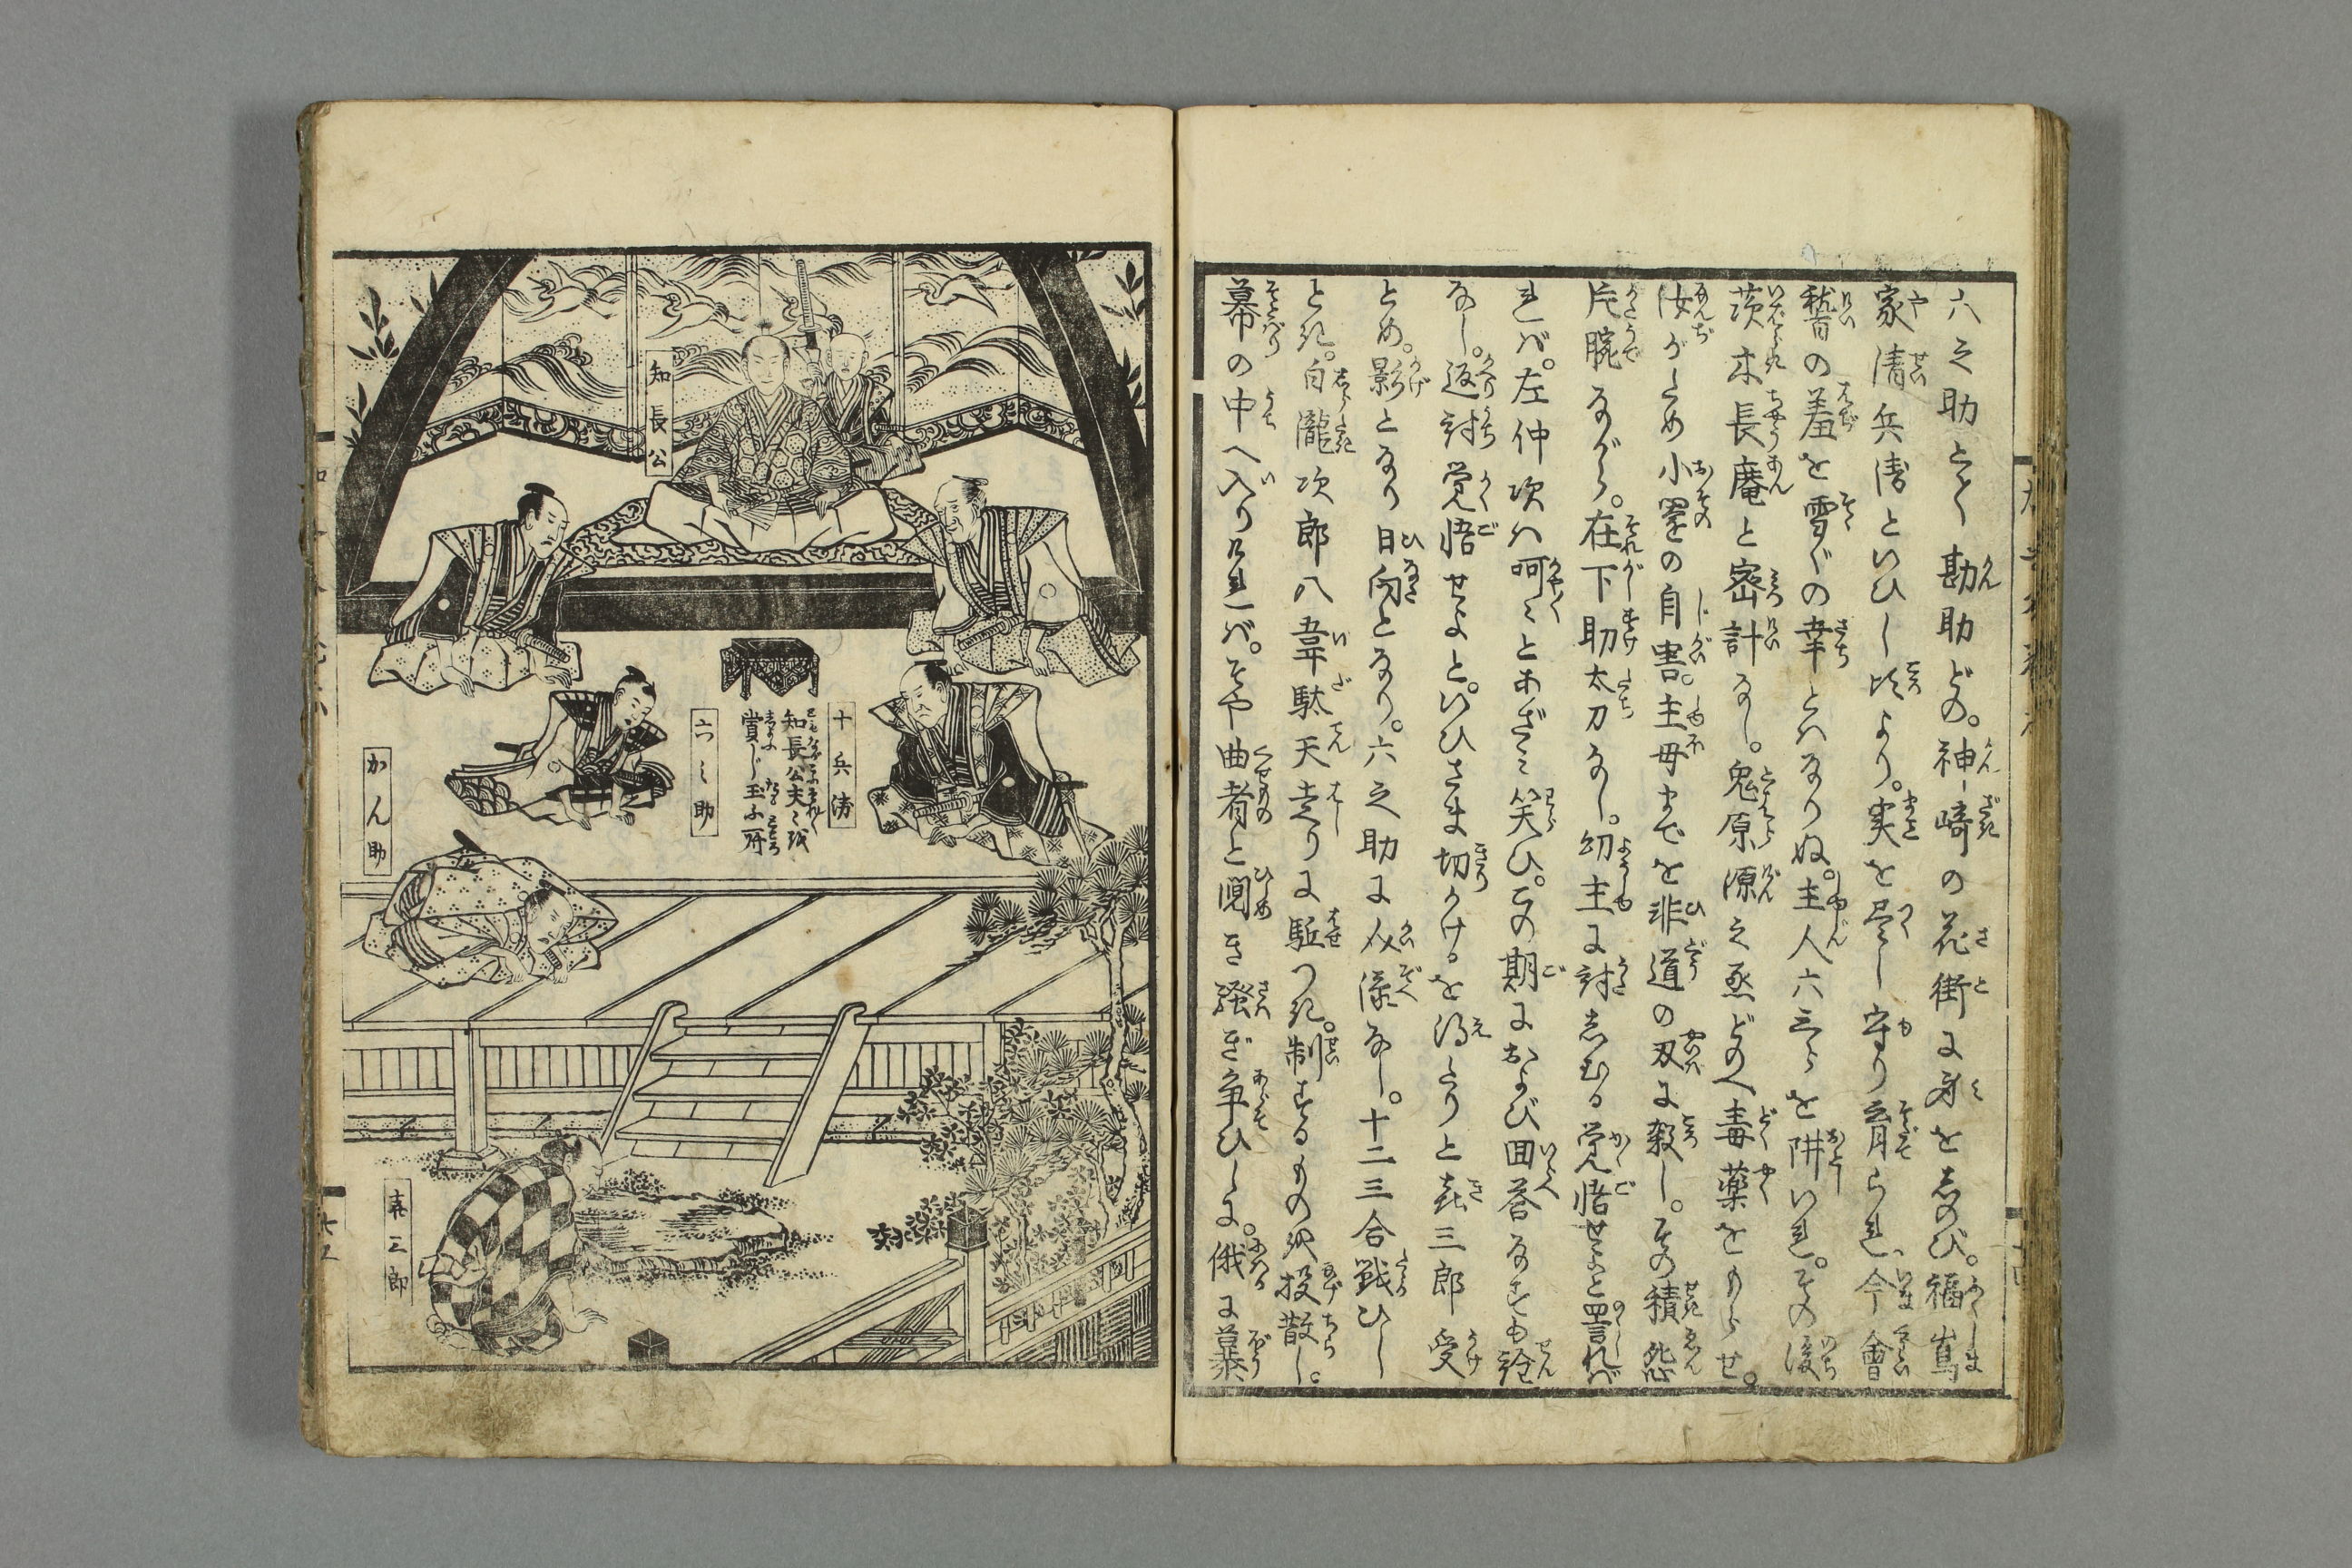 六之助とく勘助どの。神崎の花街に身をしのび。福嶌
家清兵衛といひし比より。実を尽し守り育られ、今會
稽の羞を雪ぐの幸とはなりぬ。主人六三らを阱いれ。その後
茨木長庵と密計なし。鬼原源之丞どのへ毒薬をもらせ。
汝がため小園の自害。主母までを非道の刃に殺し。その積怨
片腕ながら。在下助太刀なし。幼主に討しむる覚悟せよと罟れば
れば。左仲次は呵〻とあざみ笑ひ。この期におよび回答なすも詮
なし。返討覚悟せよと。いひさま切かけるを得たりと喜三郎受
とめ。影となり日向となり。六之助に介添なし。十二三合戦ひし
とき。白瀧次郎八韋駄天走りに駈つき。制するもの次投散し。
幕の中へ入りければ。そや曲者と鬩き騒ぎ争ひしに。俄に暴
知長公
十兵衛
知長公夫〻を
賞し玉ふ所
六之助
かん助
喜三郎